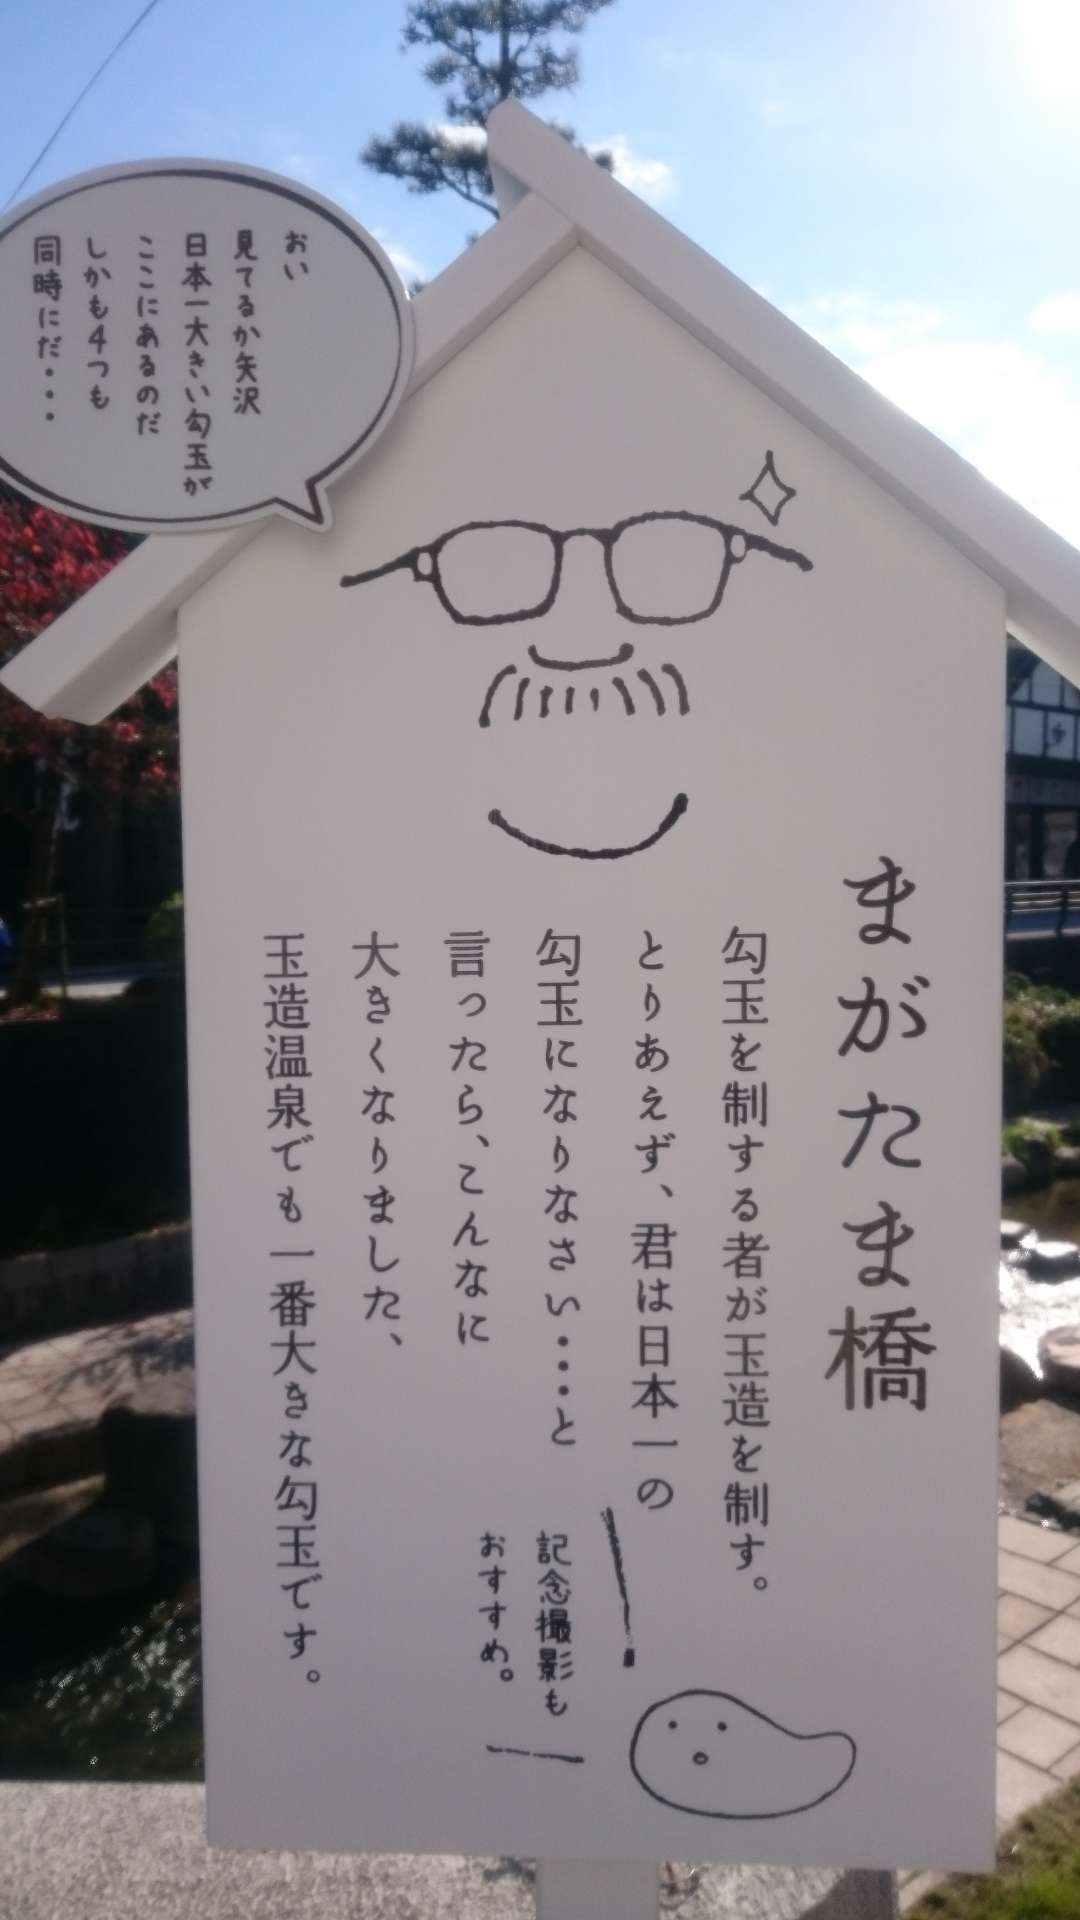 おい
見てるか矢沢
日本一大きい勾玉が
ここにあるのだ
しかも4つも
同時にだ・・・
まがたま橋
勾玉を制する者が玉造を制す。
とりあえず、君は日本一の
勾玉になりなさい・・・と
言ったら、こんなに
大きくなりました、
玉造温泉でも一番大きな勾玉です。
記念撮影も
おすすめ。